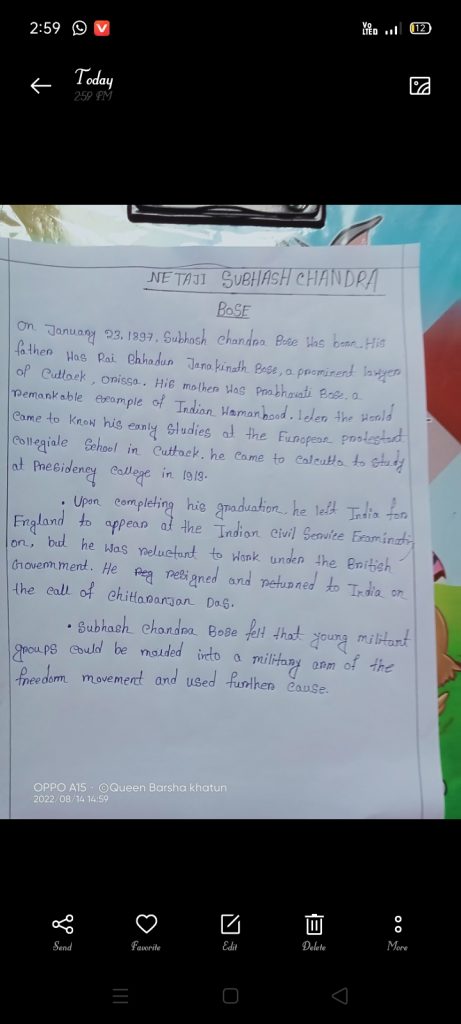 2:59
Vo LTED
12
Today
2:59 PM
NETAJI SUBHASH CHANDRA
BOSE
On January 23, 1897, Subhash Chandra Bose was born. His
father was Rai Bhhadur Janakinath Bose, a prominent lawyer
of Cuttack, Orissa. His mother was Prabhavati Bose, a
remarkable example of Indian Womanhood. leter the world
came to know his early studies at the European protestant
collegiate School in Cuttack. he came to calcutta to study
at Presidency College in 1913.
• Upon completing his graduation he left India for
England to appear at the Indian Civil Service Examinati
on, but he was reluctant to work under the British
Government. He reg resigned and returned to India on
the call of Chittaranjan Das.
• Subhash Chandra Bose felt that young militant
groups could be molded into a military arm of the
freedom movement and used further cause.
OPPO A15 · ©Queen Barsha khatun
2022/08/14 14:59
Send
Favorite
Edit
Delete
More